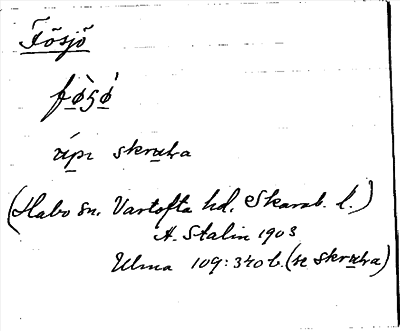 Fösjö
fø̀sø̀
úpı skruka
(Habo sn. Vartofta hd. Skarab. l.)
A. Stalin 1903
Ulma 109:340 b. (se skruka)